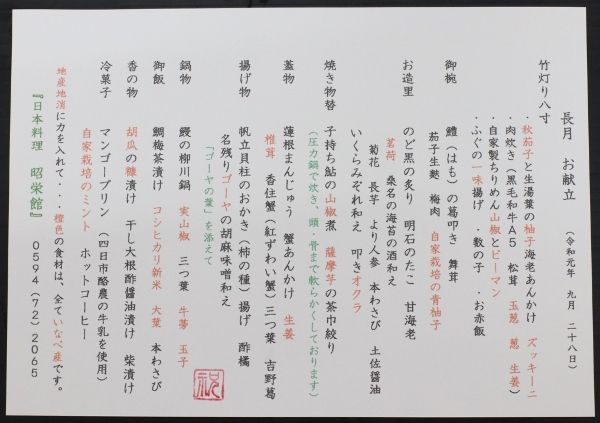 長月　お献立　（令和元年　九月　二十八日）
竹灯り八寸
・秋茄子と生湯葉の柚子海老あんかけ　ズッキーニ
・肉炊き（黒毛和牛A５　松茸　玉葱　葱　生姜）
・自家製ちりめん山椒とピーマン
・ふぐの一味揚げ　・数の子　・お赤飯
御椀　鱧（はも）の葛叩き　舞茸
茄子生麩　梅肉　自家栽培の青柚子
お造里　のど黒の炙り　明石のたこ　甘海老
茗荷　桑名の海苔の酒和え
菊花　長芋　より人参　本わさび　土佐醤油
いくらみぞれ和え　叩きオクラ
焼き物替　子持ち鮎の山椒煮　薩摩芋の茶巾絞り
（圧力鍋で炊き、頭・骨まで軟らかくしております）
蓋物　蓮根まんじゅう　蟹あんかけ　生姜
椎茸　香住蟹（紅ずわい蟹）三つ葉　吉野葛
揚げ物　帆立貝柱のおかき（柿の種）揚げ　酢橘
名残りゴーヤの胡麻味噌和え
「ゴーヤの葉」を添えて
鍋物　鰻の柳川鍋　実山椒　三つ葉　牛蒡　玉子
御飯　鯛梅茶漬け　コシヒカリ新米　大葉　本わさび
香の物　胡瓜の糠漬け　干し大根酢醤油漬け　柴漬け
冷菓子　マンゴープリン（四日市酪農の牛乳を使用）
自家栽培のミント　ホットコーヒー
地産地消に力を入れて・・・橙色の食材は、全ていなべ産です。
『日本料理　昭栄館』　０５９４（７２）２０６５
祝